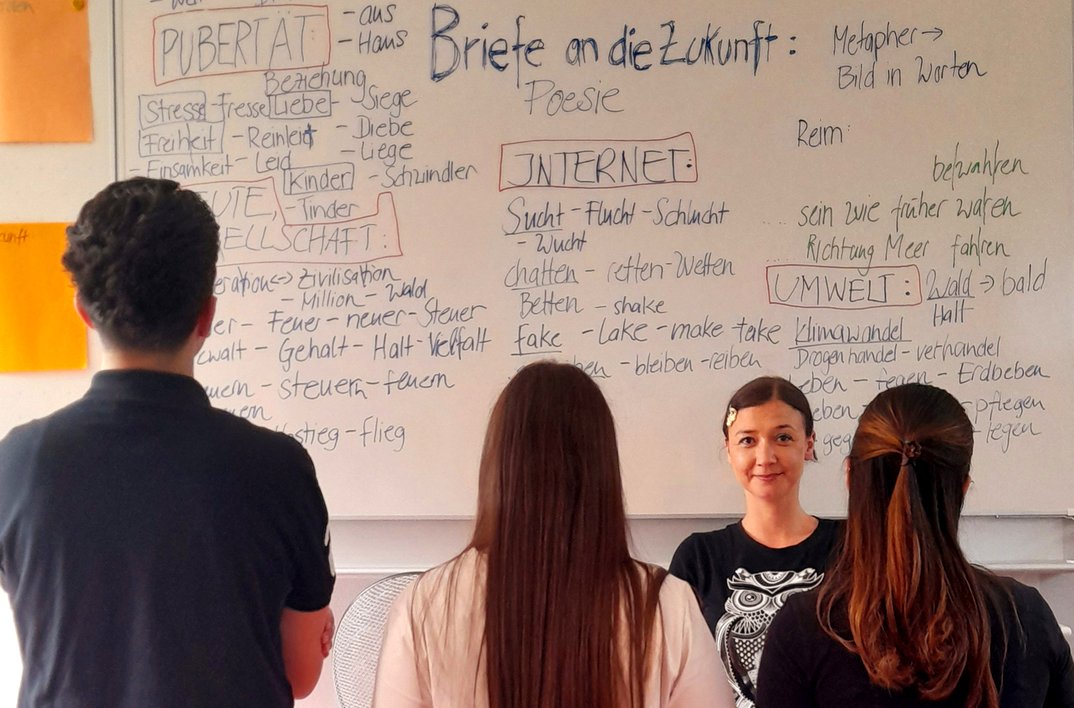 PUBERTÄT:
- aus
- Haus
Beziehung
Stress - fresse
Liebe - Siege
Freiheit - Reinleid
- Diebe
- Liege
- Einsamkeit - Leid
Kinder - Schwindler
- Tinder
EUTE,
ELLSCHAFT:
eration <-> Zivilisation
- Million - Wald
er - Feuer - neuer - Steuer
ewalt - Gehalt - Halt - Vielfalt
uern - steuern - feuern
stieg - flieg
Briefe an die Zukunft:
Poesie
INTERNET:
Sucht - Flucht - Schlucht
- Wucht
chatten - retten - Wetten
Betten - shake
Fake - Lake - make - take
ben - bleiben - reiben
Metapher →
Bild in Worten
Reim:
bewahren
.... sein wie früher waren
Richtung Meer fahren
UMWELT:
Wald → bald
Halt
Klimawandel
Drogenhandel - verhandel
eben - fegen - Erdbeben
eben
pflegen
geg
- legen
unft